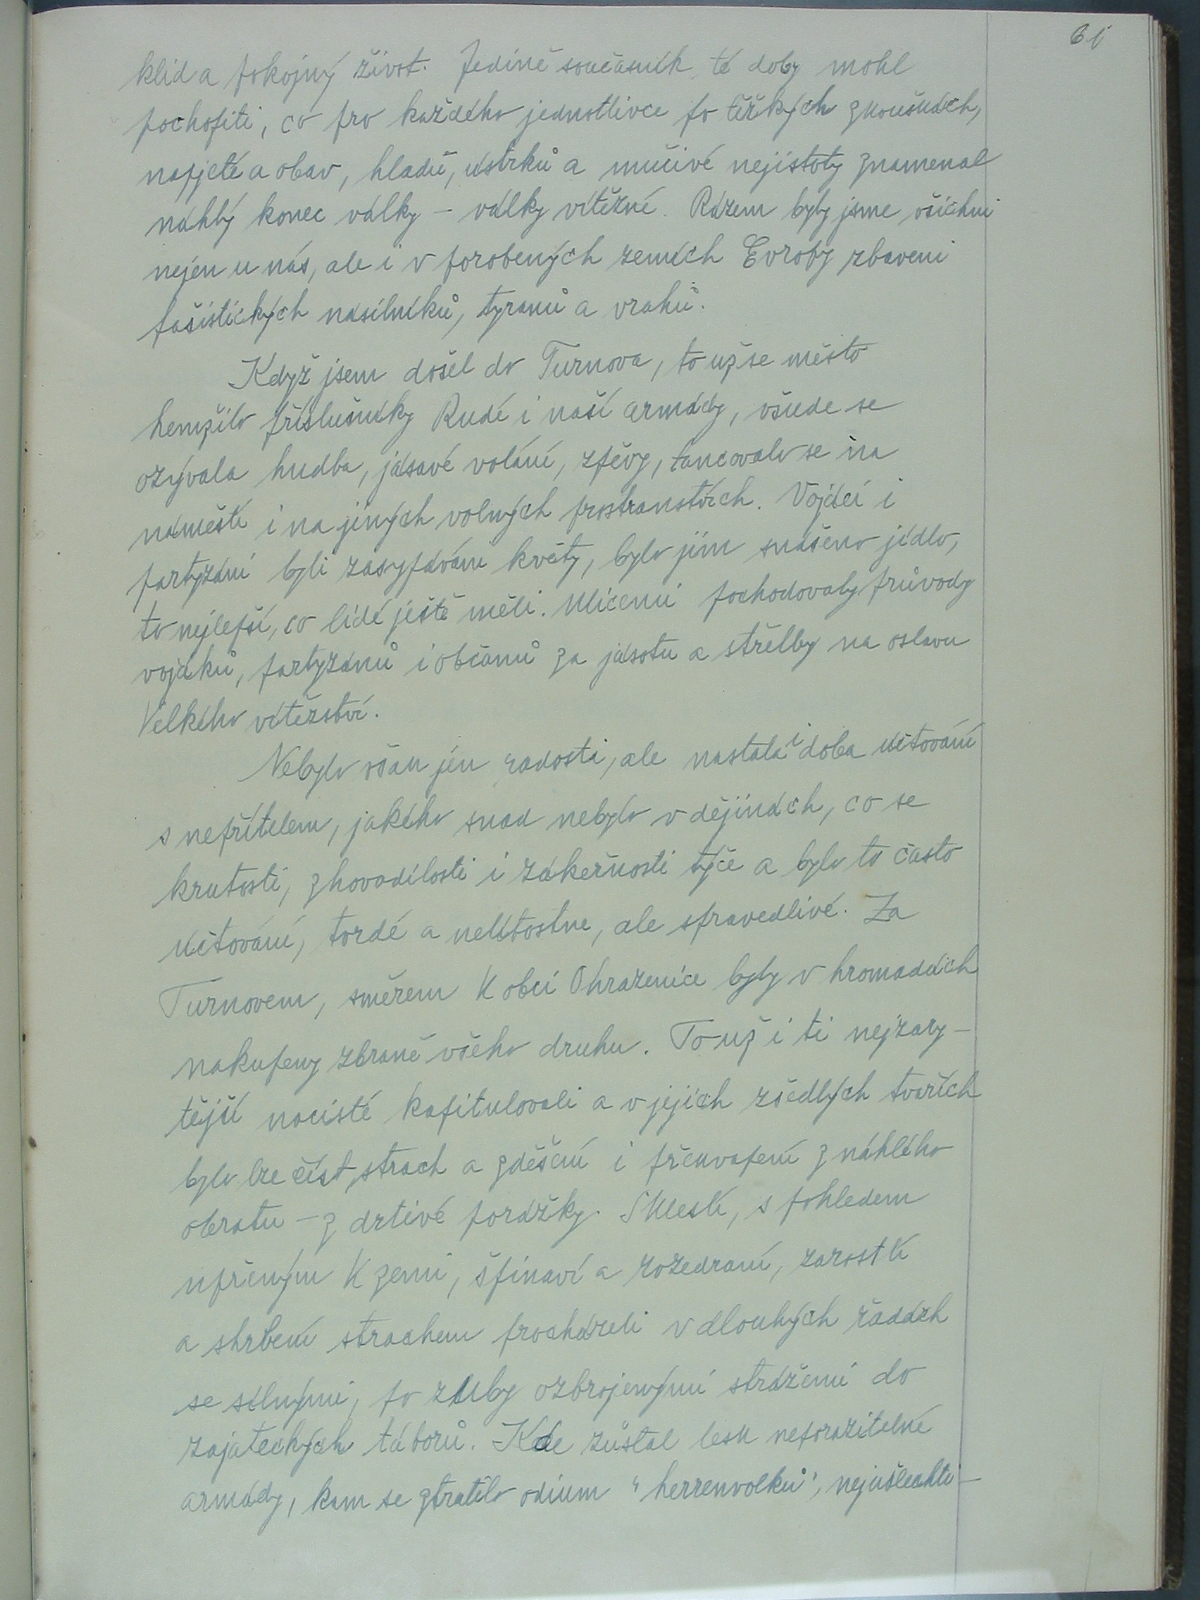 61
klid a pokojný život. Jedině současník té doby mohl
pochopiti, co pro každého jednotlivce po těžkých zkouškách,
napjetí a obav, hladu, ústrků a mučivé nejistoty znamenal
náhlý konec války – války vítězné. Rázem byly jsme všichni
nejen u nás, ale i v porobených zemích Evropy zbaveni
fašistických násilníků, tyranů a vrahů.
Když jsem došel do Turnova, to už se město
hemžilo příslušníky Rudé i naší armády, všude se
ozývala hudba, jásavé volání, zpěvy, tancovalo se na
náměstí i na jiných volných prostranstvích. Vojáci i
partyzáni byli zasypáváni květy, bylo jim snášeno jídlo,
to nejlepší, co lidé ještě měli. Ulicemi pochodovaly průvody
vojáků, partyzánů i občanů za jásotu a střelby na oslavu
Velkého vítězství.
Nebylo však jen radosti, ale nastala i doba účtování
s nepřítelem, jakého snad nebylo v dějinách, co se
krutosti, zhovadilosti i zákeřnosti týče a bylo to často
účtování, tvrdé a nelítostné, ale spravedlivé. Za
Turnovem, směrem k obci Ohrazenice byly v hromadách
nakupeny zbraně všeho druhu. To už i ti nejzary–
tější nacisté kapitulovali a v jejich zšedlých tvařích
bylo lze číst strach a zděšení i překvapení z náhlého
obratu – z drtivé porážky. Sklesli, s pohledem
upřeným k zemi, špinaví a rozedraní, zarostlí
a shrbení strachem procházeli v dlouhých řadách
se silnými, po zuby ozbrojenými strážemi do
zajateckých táborů. Kde zůstal lesk neporazitelné
armády, kam se ztratilo odium "herrenvolků", nejušlechti–